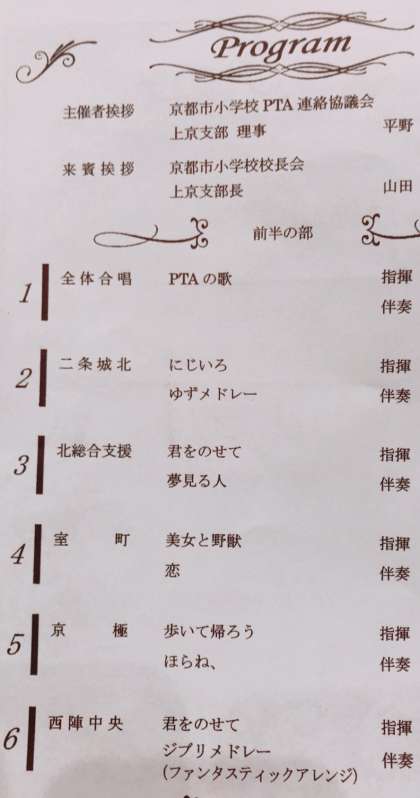 Program
主催者挨拶 京都市小学校 PTA 連絡協議会
上京支部 理事 平野
来賓挨拶 京都市小学校校長会
上京支部長 山田
前半の部
1 全体合唱 PTA の歌 指揮
伴奏
2 二条城北 にじいろ 指揮
ゆずメドレー 伴奏
3 北総合支援 君をのせて 指揮
夢見る人 伴奏
4 室町 美女と野獣 指揮
恋 伴奏
5 京極 歩いて帰ろう 指揮
ほらね、 伴奏
6 西陣中央 君をのせて 指揮
ジブリメドレー 伴奏
(ファンタスティックアレンジ)